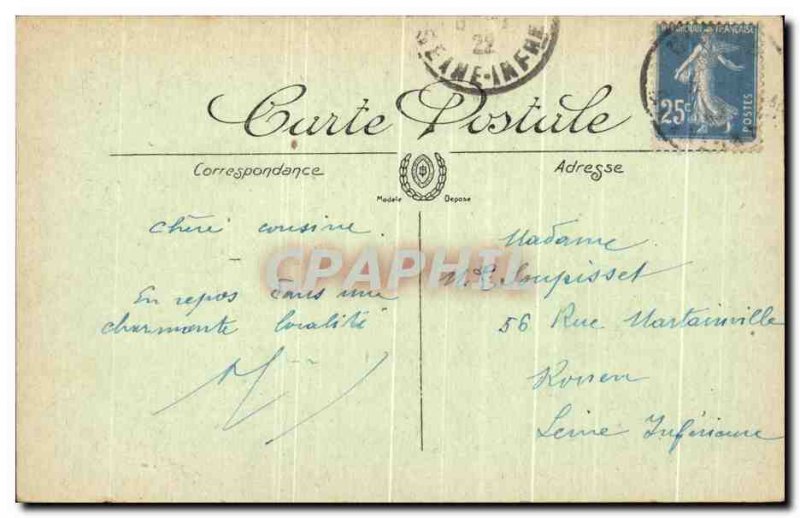 SEINE-INFRE
22
RÉPUBLIQUE FRANÇAISE
25c
POSTES
Carte Postale
Correspondance
Adresse
Modèle Déposé
Chère cousine.
En repos dans une
charmante localité
CPARAMA
Madame
56 Rue Martainville
Rouen
Seine Inférieure